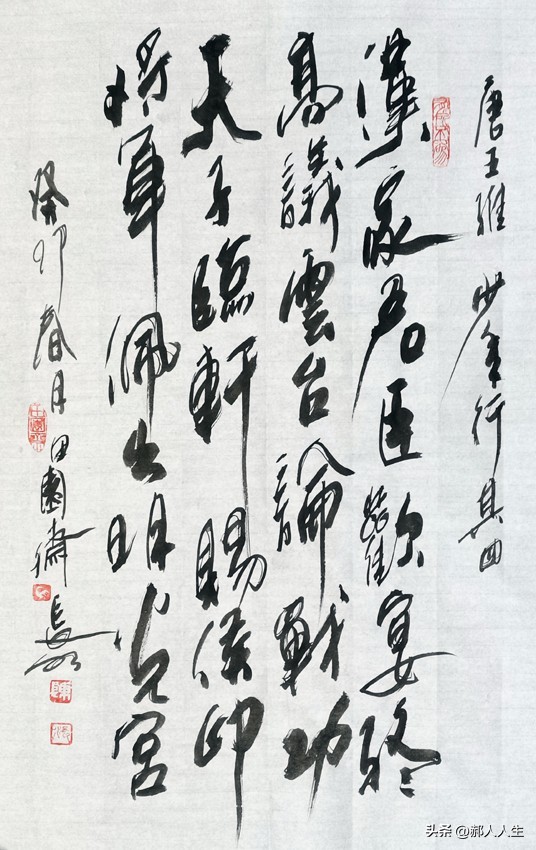 唐王維 少年行其四
漢家君臣歡宴終
高議雲台論戰功
天子臨軒賜侯印
將軍佩出明光宮
癸卯春月田園齋長
头条 @郝人人生